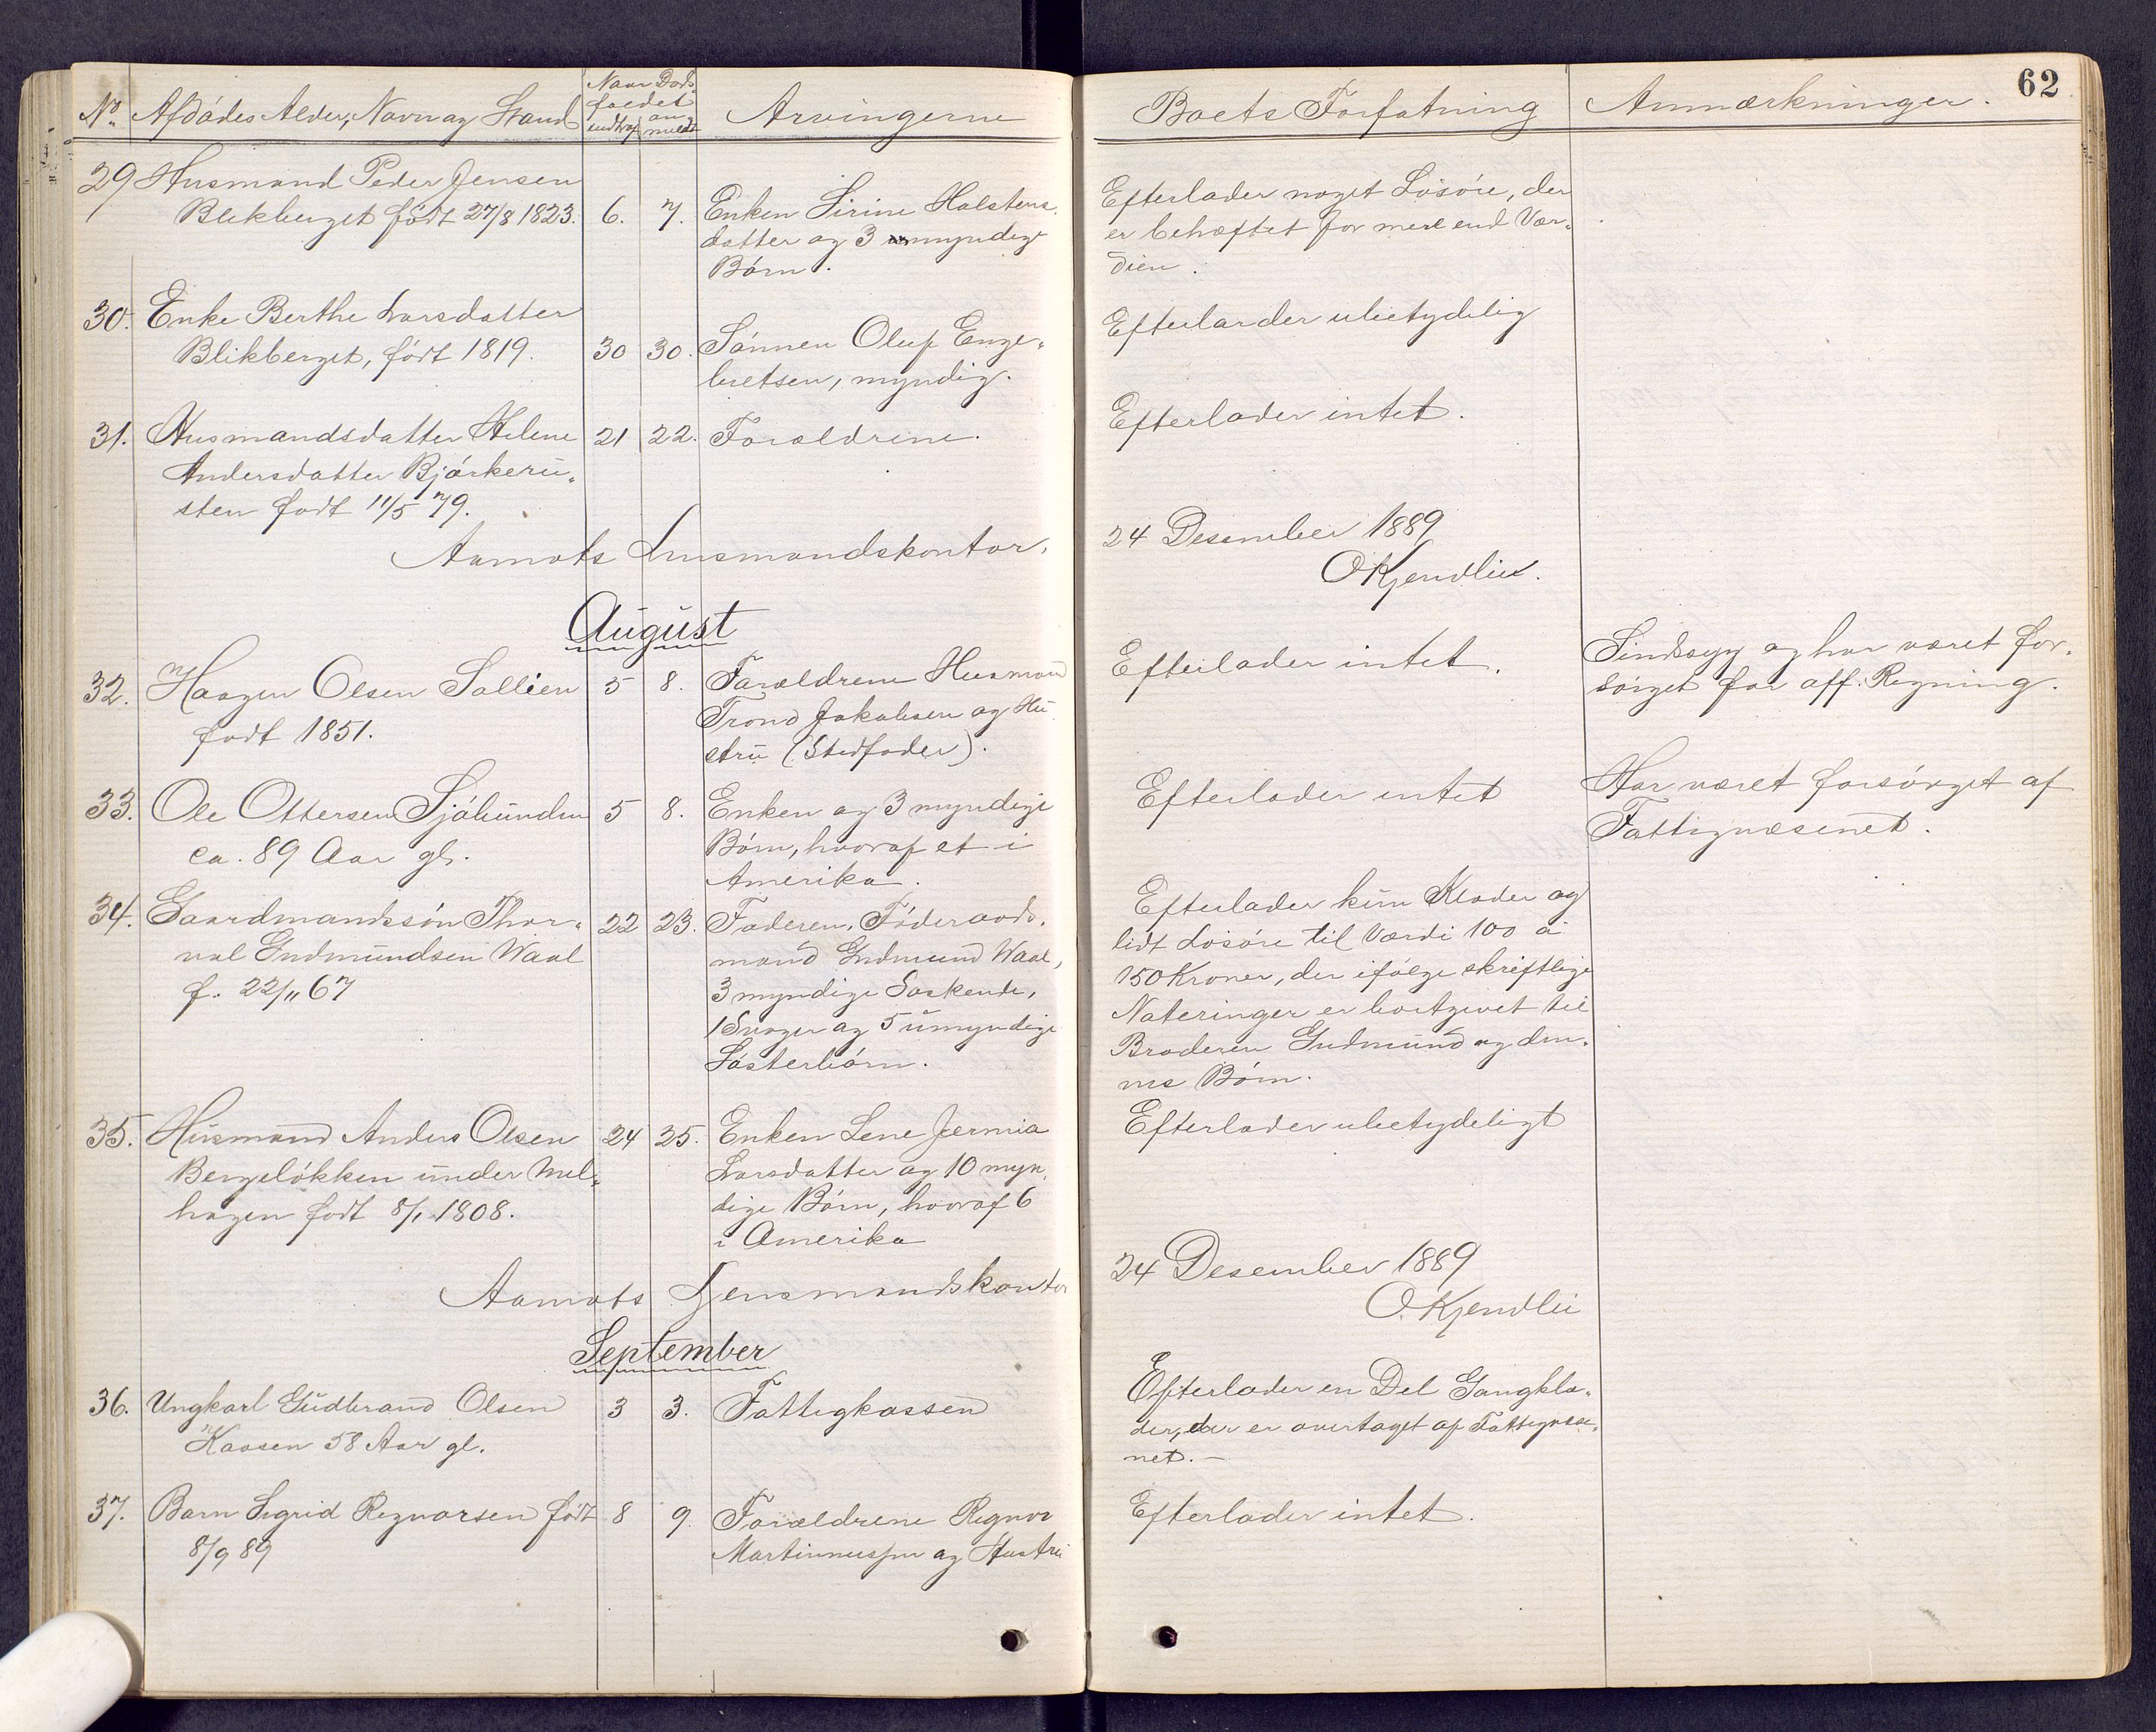 62
No Afdødes Alder, Navn og Stand
Naar Døds-
faldet
indtraf
an-
meldt
Arvingerne
Boets Forfatning
Anmærkninger.
29 Husmand Peder Jensen
Blikberget født 27/8 1823. 6. 7.
Enken Sirine Halstens
datter og 3 myndige
Børn.
Efterlader noget Løsøre, der
er behæftet for mere end Vær-
dien.
30. Enke Berthe Larsdatter
Blikberget, født 1819. 30 30.
Sønnen Oluf Enge-
bretsen, myndig.
Efterlarder ubetydelig
31. Husmandsdatter Helene 21 22.
Andersdatter Bjørkeru-
sten født 11/5 79.
Forældrene.
Efterlader intet.
Aamots Lensmandskontor, 24 Desember 1889
O Kjendlie.
August
32. Haagen Olsen Sollien 5 8.
født 1851.
Forældrene Husmand
Trond Jakobsen og Hu
stru (Stedfader).
Efterlader intet.
Sindssyg og har været for-
sørget for off. Regning.
33. Ole Ottersen Sjøliunden 5 8.
ca. 89 Aar gl.
Enken og 3 myndige
Børn, hvoraf et i
Amerika.
Efterlader intet
Har været forsørget af
Fattigvæsenet.
34. Gaardmandssøn Thor- 22 23.
val Gudmundsen Waal
f. 22/11 67
Faderen, Føderaads-
mand Gudmund Waal,
3 myndige Søskende,
1 Svoger og 5 umyndige
Søsterbørn.
Efterlader kun Klæder og
lidt Løsøre til Værdi 100 à
150 Kroner, der ifølge skriftlige
Noteringer er bortgivet til
Broderen Gudmund og den-
nes Børn.
35. Husmand Anders Olsen 24 25.
Bergeløkken under Mel-
hagen født 8/1 1808.
Enken Lene Jermia
Larsdatter og 10 myn-
dige Børn, hvoraf 6
i Amerika
Efterlader ubetydeligt
Aamots Lensmandskontor 24 Desember 1889
O. Kjendlie
September
36. Ungkarl Gudbrand Olsen 3 3.
Kaasen 58 Aar gl.
Fattigkassen
Efterlader en Del Gangklæ-
der, der er overtaget af Fattigvæse-
net. –
37. Barn Sigrid Regnvarsen født 8 9.
8/9 89
Forældrene Regnva
Martinnussen og Hustru
Efterlader intet.